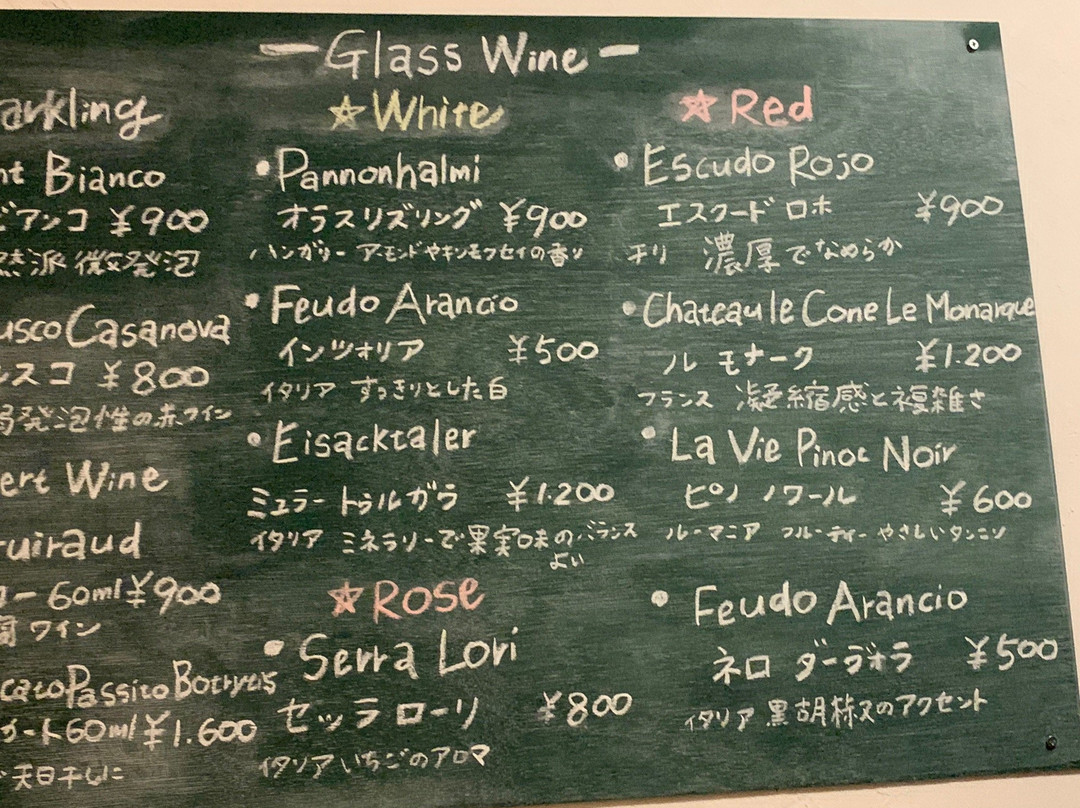 ーGlass Wineー
arkling
nt Bianco
ビアンコ ¥900
然派 微発泡
usco Casanova
スコ ¥800
発泡性の赤ワイン
ert Wine
uiraud
ー 60ml ¥900
ワイン
cato Passito Botrytis
ガート 60ml ¥1.600
天日干しに
☆White
・Pannonhalmi
オラスリズリング ¥900
ハンガリー アーモンドやキンモクセイの香り
・Feudo Arancio
インツォリア ¥500
イタリア すっきりとした白
・Eisacktaler
ミュラー トゥルガウ ¥1.200
イタリア ミネラリーで果実味のバランス
よい
☆Rose
・Serra Lori
セッラ ローリ ¥800
イタリア いちごのアロマ
☆Red
・Escudo Rojo
エスクード ロホ ¥900
チリ 濃厚でなめらか
・Chateau le Cone Le Monarque
ル モナーク ¥1.200
フランス 凝縮感と複雑さ
・La Vie Pinot Noir
ピノ ノワール ¥600
ルーマニア フルーティー やさしいタンニン
・Feudo Arancio
ネロ ダーヴォラ ¥500
イタリア 黒胡椒のアクセント